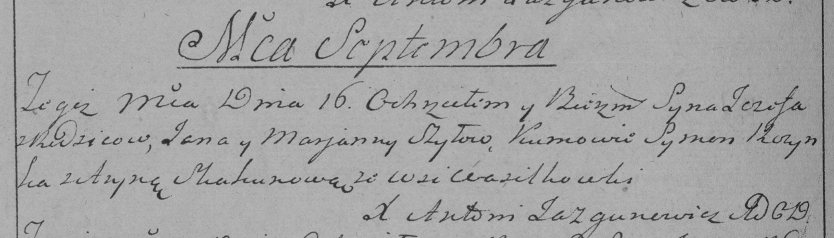 X Antoni Łazgunowicz
Mca Septembra
Tegiż Mca Dnia 16. Ochrzciłem y Bierzm Syna Jozefa
z Rodzicow, Jana y Marjanny Szyłow, Kumowie Symon Kozyn
ka z Aryną Skakunową ze wsi Wasilkowki
X Antoni Łazgunowicz